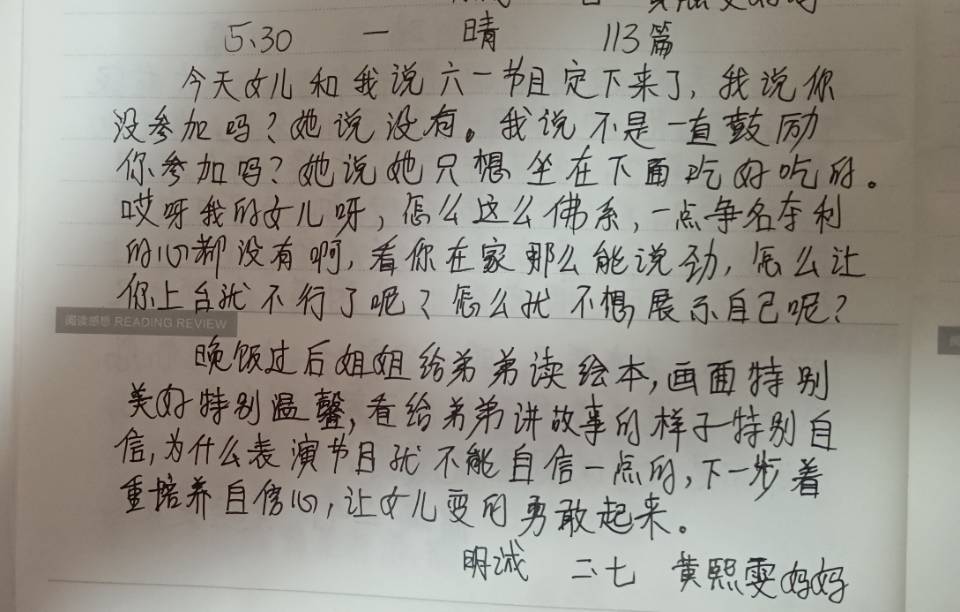 5、30 一 晴 113篇
今天女儿和我说六一节目定下来了,我说你
没参加吗?她说没有。我说不是一直鼓励
你参加吗?她说她只想坐在下面吃好吃的。
哎呀我的女儿呀,怎么这么佛系,一点争名夺利
的心都没有啊,看你在家那么能说劲,怎么让
你上台就不行了呢?怎么就不想展示自己呢?
阅读感悟 READING REVIEW
晚饭过后姐姐给弟弟读绘本,画面特别
美好特别温馨,看给弟弟讲故事的样子特别自
信,为什么表演节目就不能自信一点的,下一步着
重培养自信心,让女儿变的勇敢起来。
明诚 二七 黄熙雯妈妈